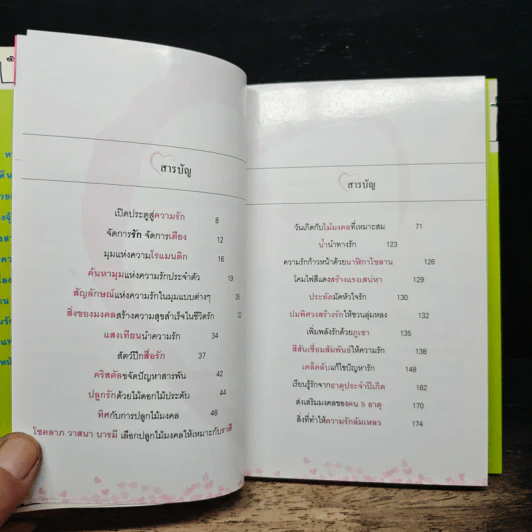 สารบัญ
เปิดประตูสู่ความรัก 8
จัดการรัก จัดการเตียง 12
มุมแห่งความโรแมนติก 16
ค้นหามุมแห่งความรักประจำตัว 19
สัญลักษณ์แห่งความรักในมุมแบบต่างๆ
สิ่งของมงคลสร้างความสุขสำเร็จในชีวิตรัก
แสงเทียนนำความรัก 34
สัตว์ปีกสื่อรัก 37
คริสตัลขจัดปัญหาสารพัน 42
ปลูกรักด้วยไม้ดอกไม้ประดับ 44
ทิศกับการปลูกไม้มงคล 48
โชคลาภ วาสนา บารมี เลือกปลูกไม้มงคลให้เหมาะกับราศี
สารบัญ
วันเกิดกับไม้มงคลที่เหมาะสม 71
น้ำนำทางรัก 123
ความรักก้าวหน้าด้วยนาฬิกาโบลาน 126
โคมไฟสีแดงสร้างแรงเสน่หา 129
ประทัดมัดหัวใจรัก 130
ปมพิศวงสร้างรักให้ชวนลุ่มหลง 132
เพิ่มพลังรักด้วยภูเขา 135
สีสันเชื่อมสัมพันธ์ให้ความรัก 138
เคล็ดลับแก้ไขปัญหารัก 148
เรียนรู้รักจากธาตุประจำปีเกิด 162
ส่งเสริมมงคลของคน 5 ธาตุ 170
สิ่งที่ทำให้ความรักล้มเหลว 174